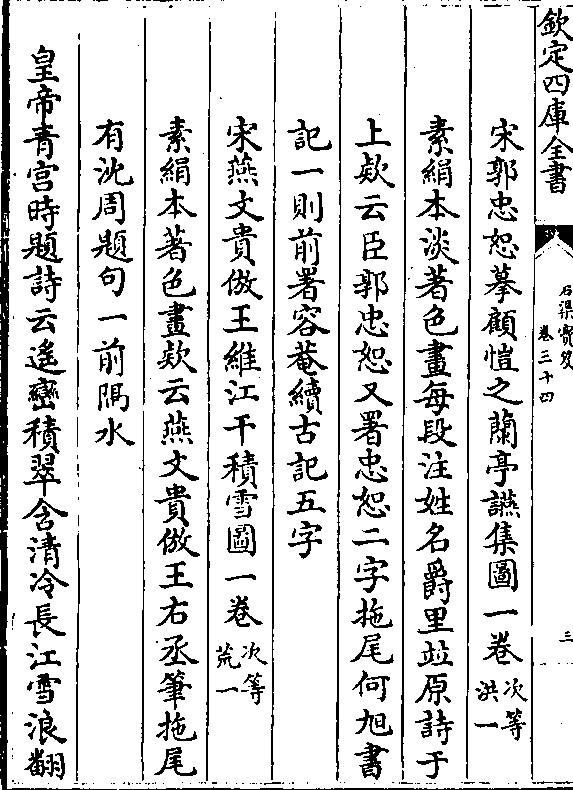 欽定四庫全書
石渠寳笈
卷三十四
三
宋郭忠恕摹顧愷之蘭亭讌集圖一卷次等洪一
素絹本淡著色畫每段注姓名爵里竝原詩于
上欵云臣郭忠恕又署忠恕二字拖尾何旭書
記一則前署容菴續古記五字
宋燕文貴倣王維江干積雪圖一卷次等荒一
素絹本著色畫欵云燕文貴倣王右丞筆拖尾
有沈周題句一前隔水
皇帝青宫時題詩云遙巒積翠含清冷長江雪浪翻